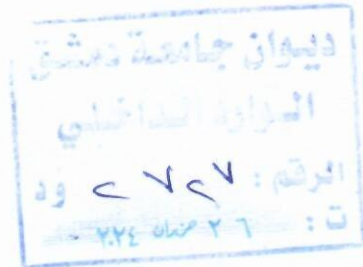 ديوان جامعة دمشق
الوارد الداخلي
الرقم : ٢٧٢٧ ود
ت : ٢٦ حزيران ٢٠٢٤